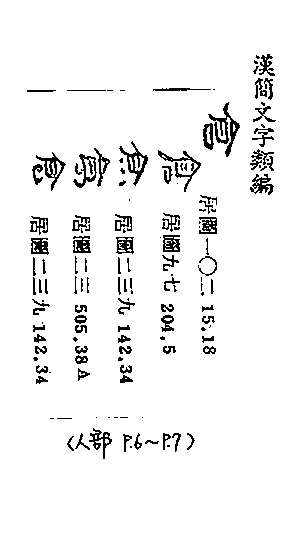 漢簡文字類編
居圖一〇二 15.18
居圖九七 204.5
居圖二三九 142.34
居圖二三 505.38A
居圖二三九 142.34
(人部 P.6~P.7)